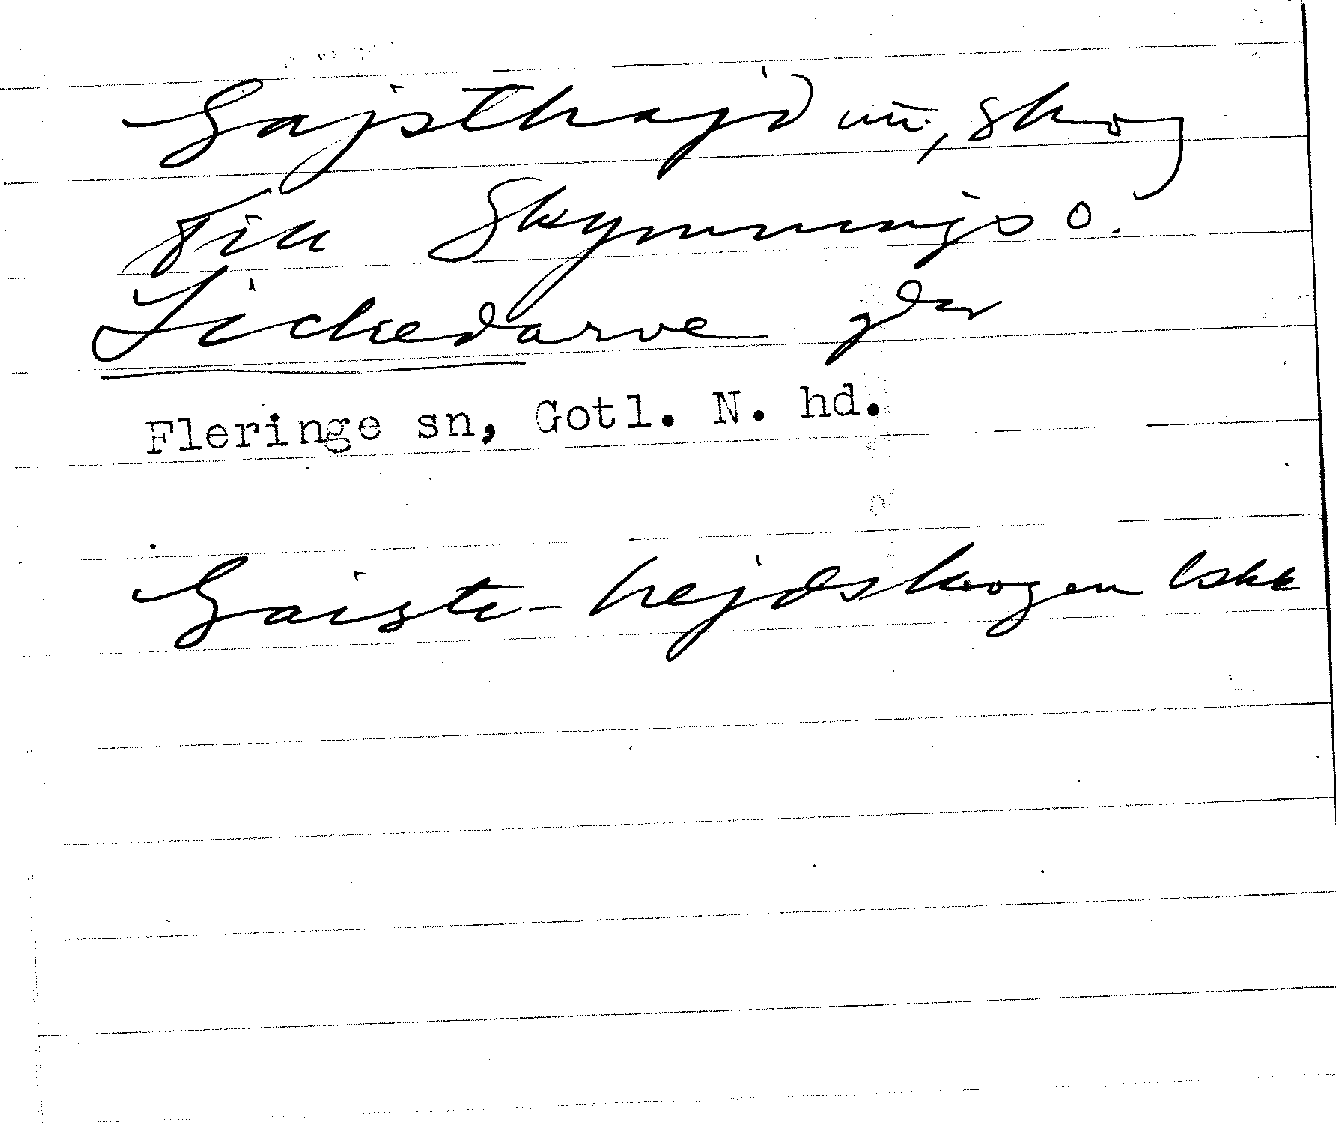 Gajsthajd un, skog
Till Skymmings o.
Lickedarve gdr
Fleringe sn, Gotl. N. hd.
Gaiste-hejdskogen lskk